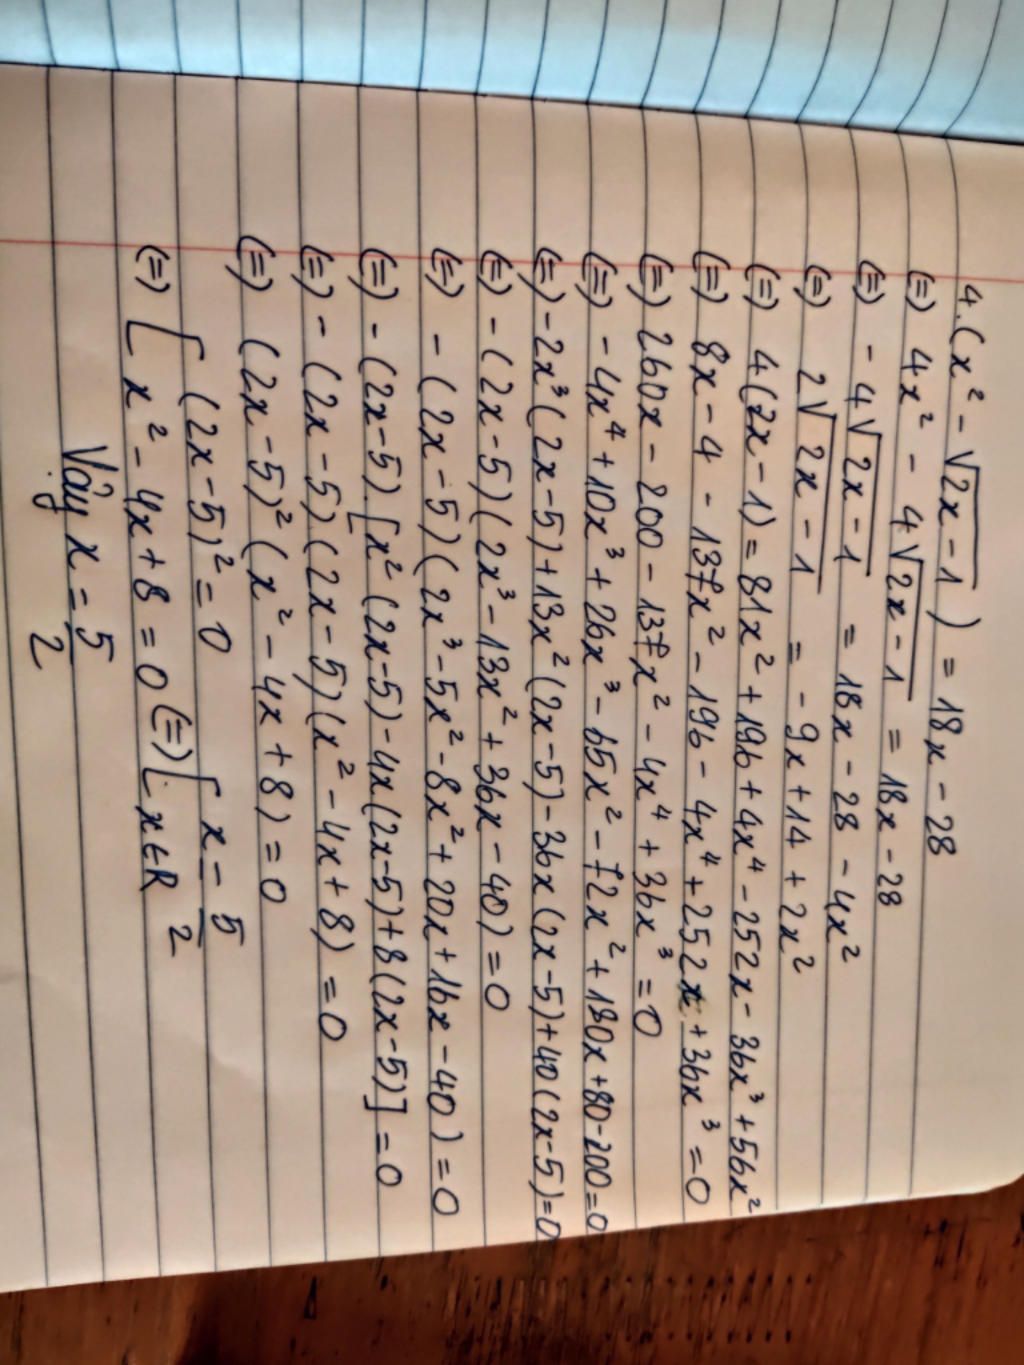 4.(x² - √(2x-1)) = 18x - 28
(=) 4x² - 4√(2x-1) = 18x - 28
(=) -4√(2x-1) = 18x - 28 - 4x²
(=) 2√(2x-1) = -9x + 14 + 2x²
(=) 4(2x-1) = 81x² + 196 + 4x⁴ - 252x - 36x³ + 56x²
(=) 8x - 4 - 137x² - 196 - 4x⁴ + 252x + 36x³ = 0
(=) 260x - 200 - 137x² - 4x⁴ + 36x³ = 0
(=) -4x⁴ + 10x³ + 26x³ - 65x² - 72x² + 180x + 80 - 200 = 0
(=) -2x³(2x-5) + 13x²(2x-5) - 36x(2x-5) + 40(2x-5) = 0
(=) -(2x-5)(2x³ - 13x² + 36x - 40) = 0
(=) -(2x-5)(2x³ - 5x² - 8x² + 20x + 16x - 40) = 0
(=) -(2x-5).[x²(2x-5) - 4x(2x-5) + 8(2x-5)] = 0
(=) -(2x-5)(2x-5)(x² - 4x + 8) = 0
(=) (2x-5)²(x² - 4x + 8) = 0
(=) [ (2x-5)² = 0
x² - 4x + 8 = 0 (=) [ x = 5/2
x ∈ R
Vậy x = 5/2